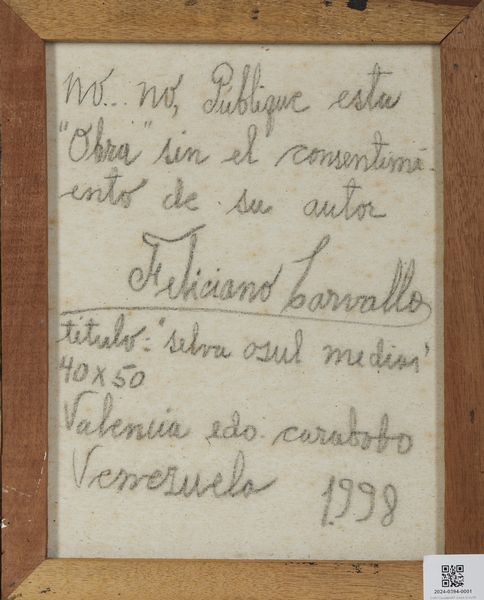 No.. no, Publique esta
"Obra" sin el consentimi-
ento de su autor
Feliciano Carvallo
titulo-"selva asul medias"
40x50
Valencia edo. carabobo
Venezuela 1998
2024-0394-0001